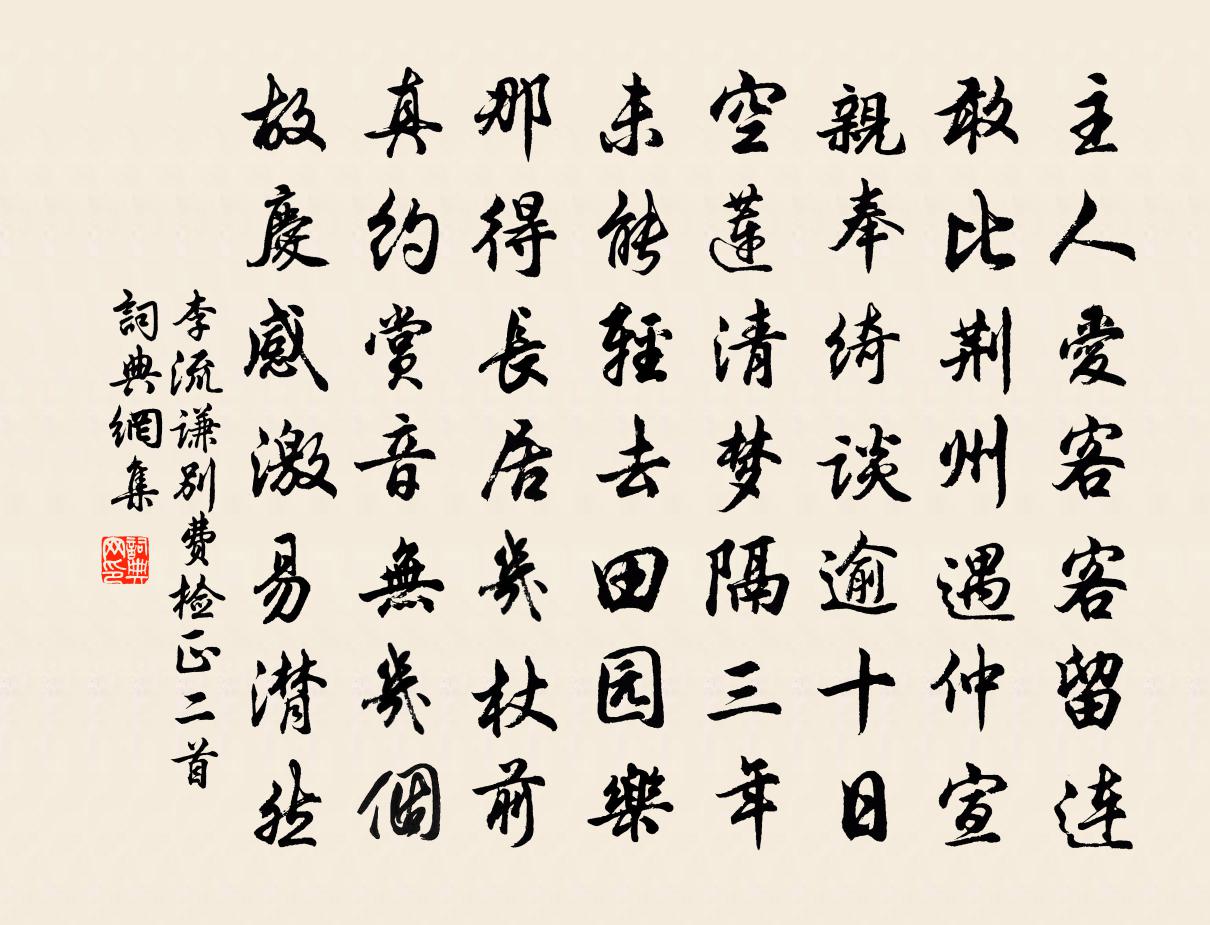 主人愛客客留連
敢比荆州遇仲宣
親奉綺談逾十日
空蓮清梦隔三年
未能輕去田园樂
那得長居幾杖前
真約賞音無幾個
故慶感激易潸然
李流谦别費检正二首
詞典網集
詞典网印